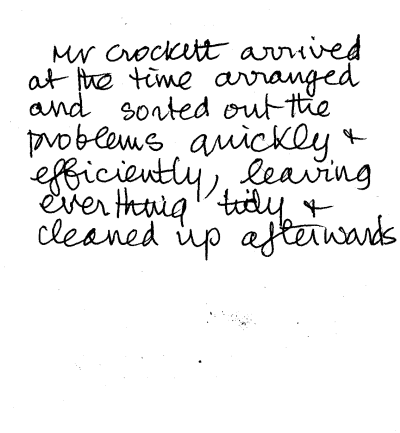 Mr Crockett arrived
at the time arranged
and sorted out the
problems quickly +
efficiently, leaving
everthing tidy +
cleaned up afterwards